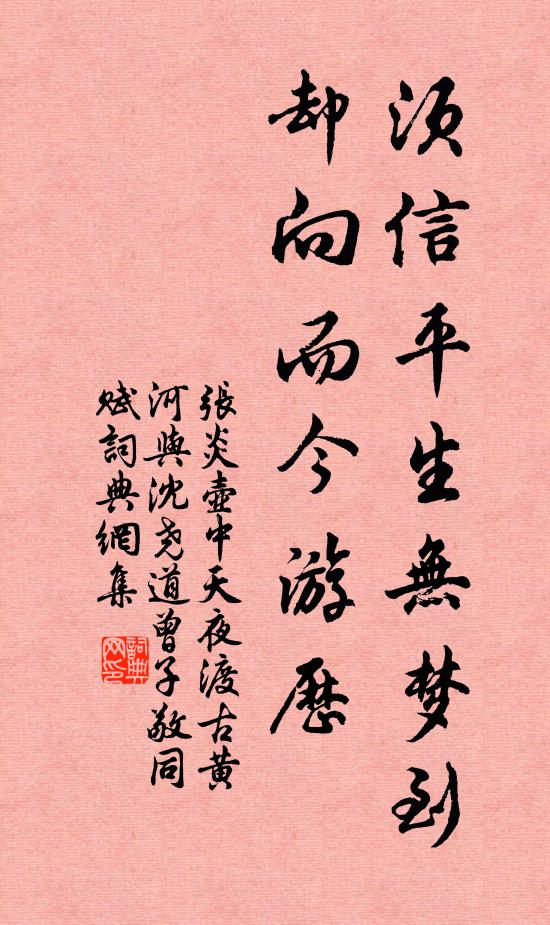 須信平生無梦到
却向而今游歷
張炎壺中天夜渡古黄
河與沈堯道曾子敬同
賦詞典網集
詞典
网印